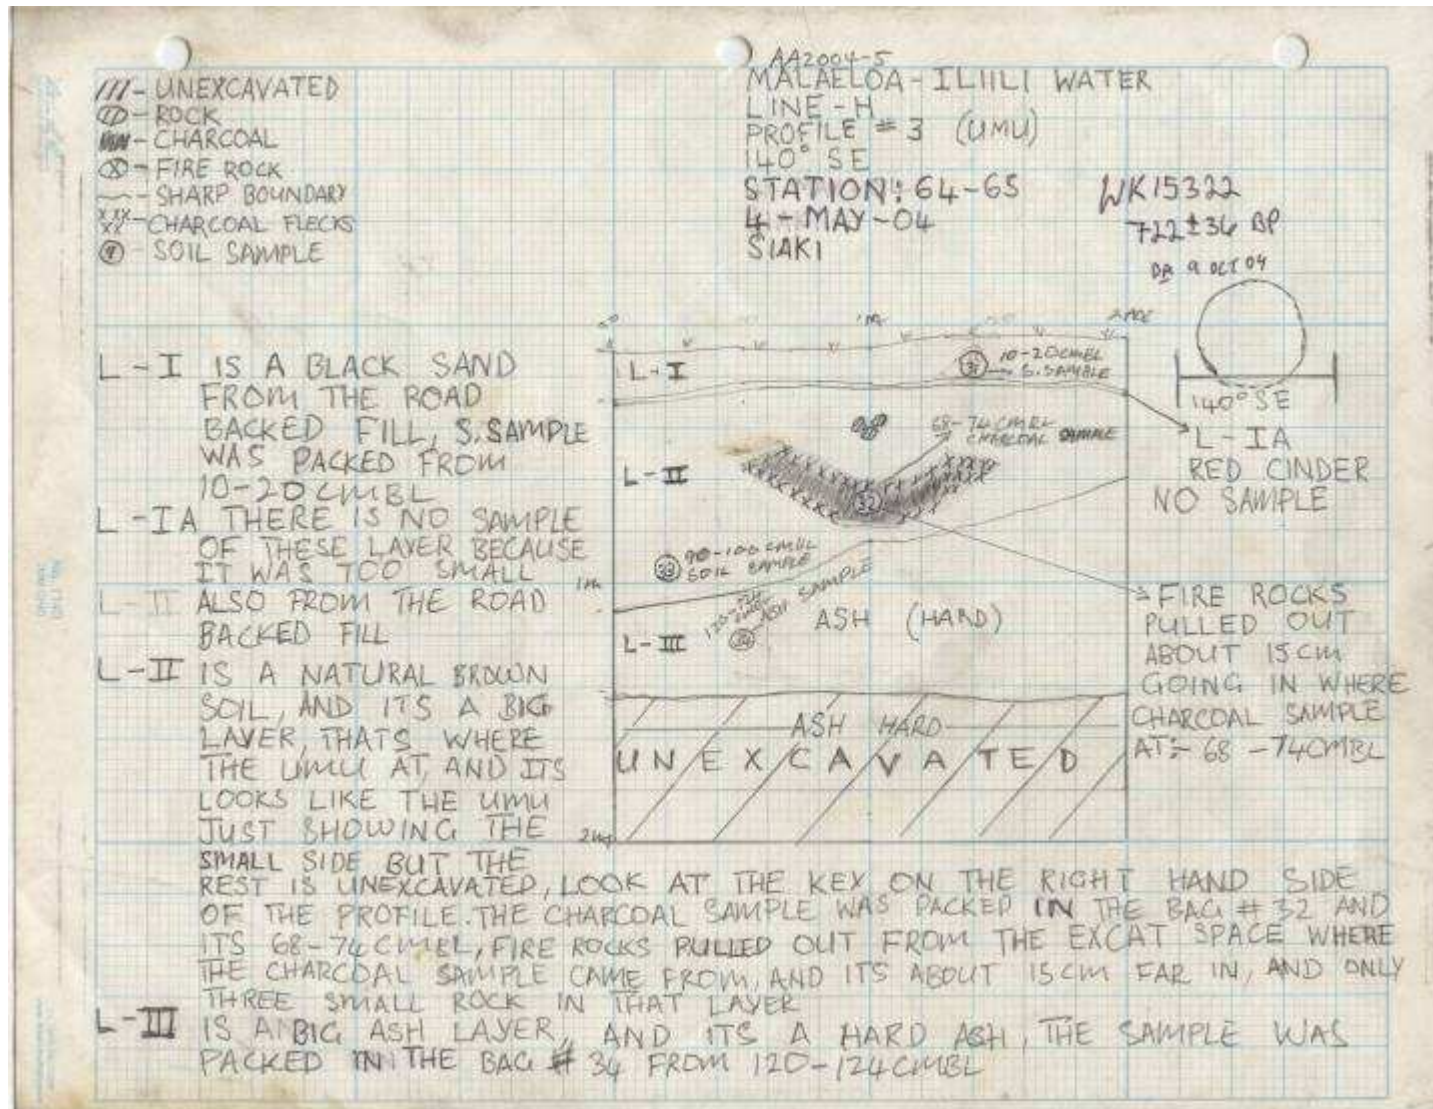 /// - UNEXCAVATED
- ROCK
- CHARCOAL
- FIRE ROCK
- SHARP BOUNDARY
- CHARCOAL FLECKS
- SOIL SAMPLE
AA2004-5
MALAELOA - ILIILI WATER
LINE - H
PROFILE # 3 (UMU)
140° SE
STATION: 64-65
4 - MAY - 04
SIAKI
WK15322
722±36 BP
9 OCT 04
1m
L-I
31
10-20CMBL
S.SAMPLE
68-74CMBL
CHARCOAL SAMPLE
L-II
32
33
90-100CMBL
SOIL SAMPLE
1m
L-III
34
ASH SAMPLE
ASH (HARD)
ASH HARD
UNEXCAVATED
140° SE
L-IA
RED CINDER
NO SAMPLE
FIRE ROCKS
PULLED OUT
ABOUT 15CM
GOING IN WHERE
CHARCOAL SAMPLE
AT:- 68 - 74CMBL
L-I IS A BLACK SAND
FROM THE ROAD
BACKED FILL, S.SAMPLE
WAS PACKED FROM
10-20CMBL
L-IA THERE IS NO SAMPLE
OF THESE LAYER BECAUSE
IT WAS TOO SMALL
L-II ALSO FROM THE ROAD
BACKED FILL
L-II IS A NATURAL BROWN
SOIL, AND ITS A BIG
LAYER, THATS WHERE
THE UMU AT, AND ITS
LOOKS LIKE THE UMU
JUST SHOWING THE
SMALL SIDE BUT THE
REST IS UNEXCAVATED, LOOK AT THE KEX ON THE RIGHT HAND SIDE
OF THE PROFILE. THE CHARCOAL SAMPLE WAS PACKED IN THE BAG # 32 AND
ITS 68-74CMBL, FIRE ROCKS PULLED OUT FROM THE EXCAT SPACE WHERE
THE CHARCOAL SAMPLE CAME FROM, AND ITS ABOUT 15CM FAR IN, AND ONLY
THREE SMALL ROCK IN THAT LAYER
L-III IS A BIG ASH LAYER, AND ITS A HARD ASH, THE SAMPLE WAS
PACKED IN THE BAG # 34 FROM 120-124CMBL